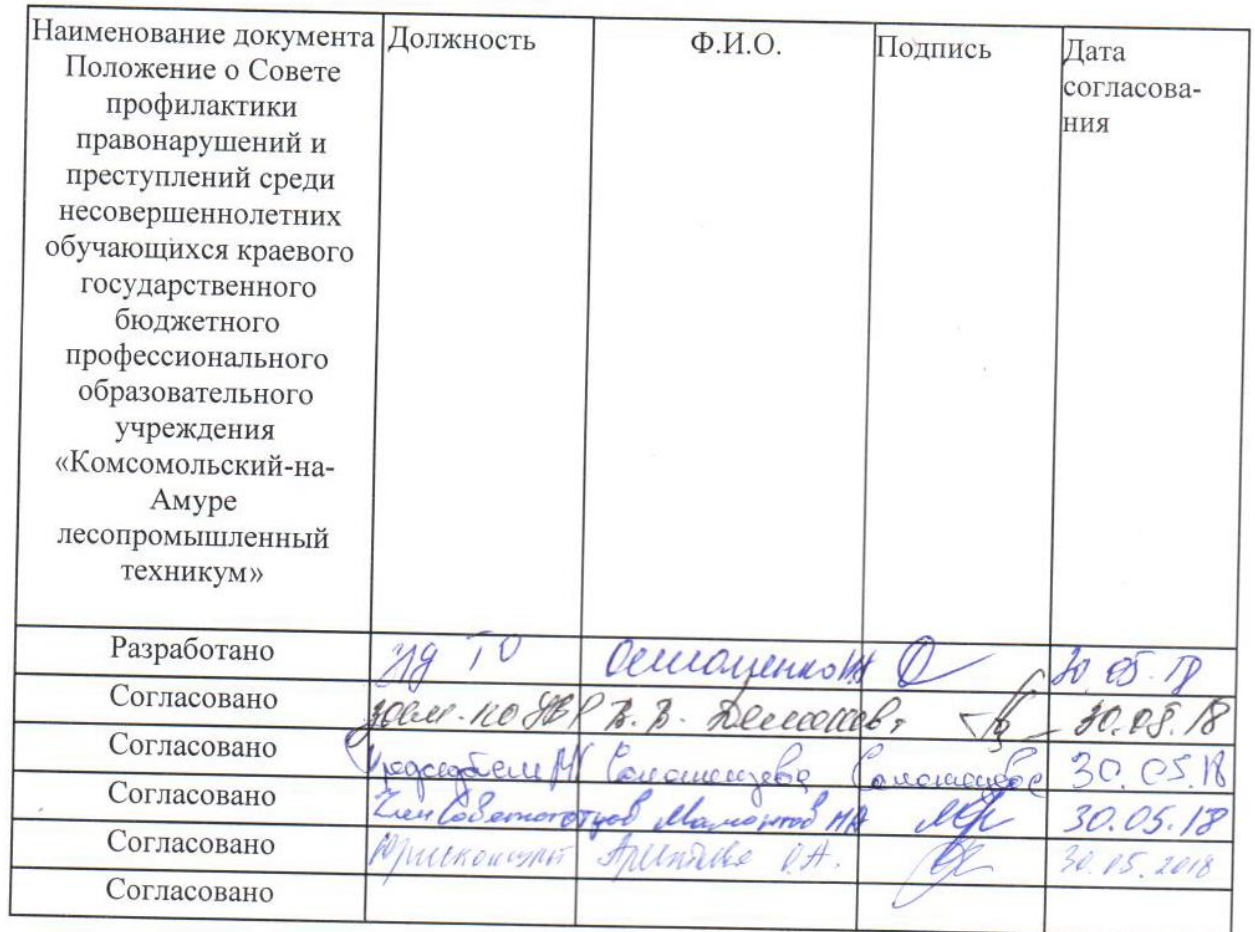 Наименование документа
Положение о Совете
профилактики
правонарушений и
преступлений среди
несовершеннолетних
обучающихся краевого
государственного
бюджетного
профессионального
образовательного
учреждения
«Комсомольский-на-
Амуре
лесопромышленный
техникум»
Должность
Ф.И.О.
Подпись
Дата
согласова-
ния
Разработано 30.05.18
Согласовано зам. по УВР В.В. 30.05.18
Согласовано 30.05.18
Согласовано Член Совета отцов Мамонтов 30.05.18
Согласовано Юрисконсульт О.А. 30.05.2018
Согласовано